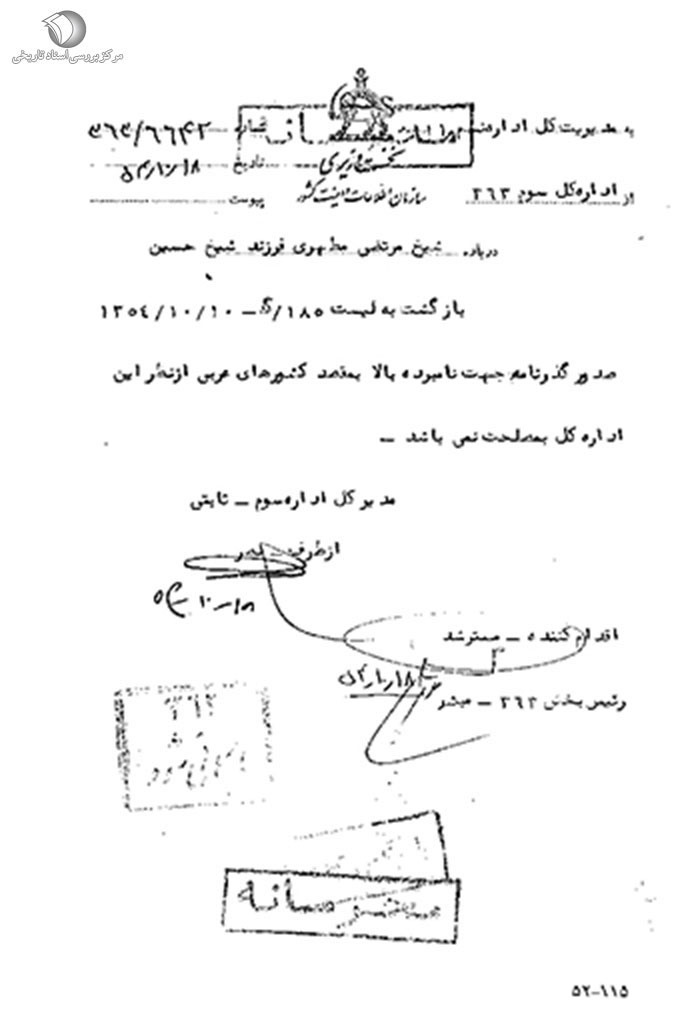 مرکز بررسی اسناد تاریخی
به مدیریت کل اداره
محرمانه
شماره ۳۶۳/۶۶۴۲
نخست وزیری
تاریخ ۵۴/۱۰/۱۸
از اداره کل سوم ۳۶۳
سازمان اطلاعات و امنیت کشور
پیوست
درباره شیخ مرتضی مطهری فرزند شیخ حسین
بازگشت به لیست ۱۸۵/S – ۱۳۵٤/۱۰/۱۰
صدور گذرنامه جهت نامبرده بالا بمقصد کشورهای عربی ازنظر این
اداره کل بمصلحت نمی باشد –
مدیر کل اداره سوم – ثابتی
ازطرف
اقدام کننده – مسترشد
۵۴/۱۰/۱۸
رئیس بخش ۳۶۳ –
۳۱۲
محرمانه
۵۲-۱۱۵